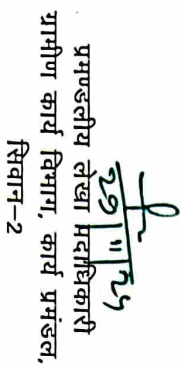 29/11/24
प्रमण्डलीय लेखा पदाधिकारी
ग्रामीण कार्य विभाग, कार्य प्रमंडल,
सिवान-2